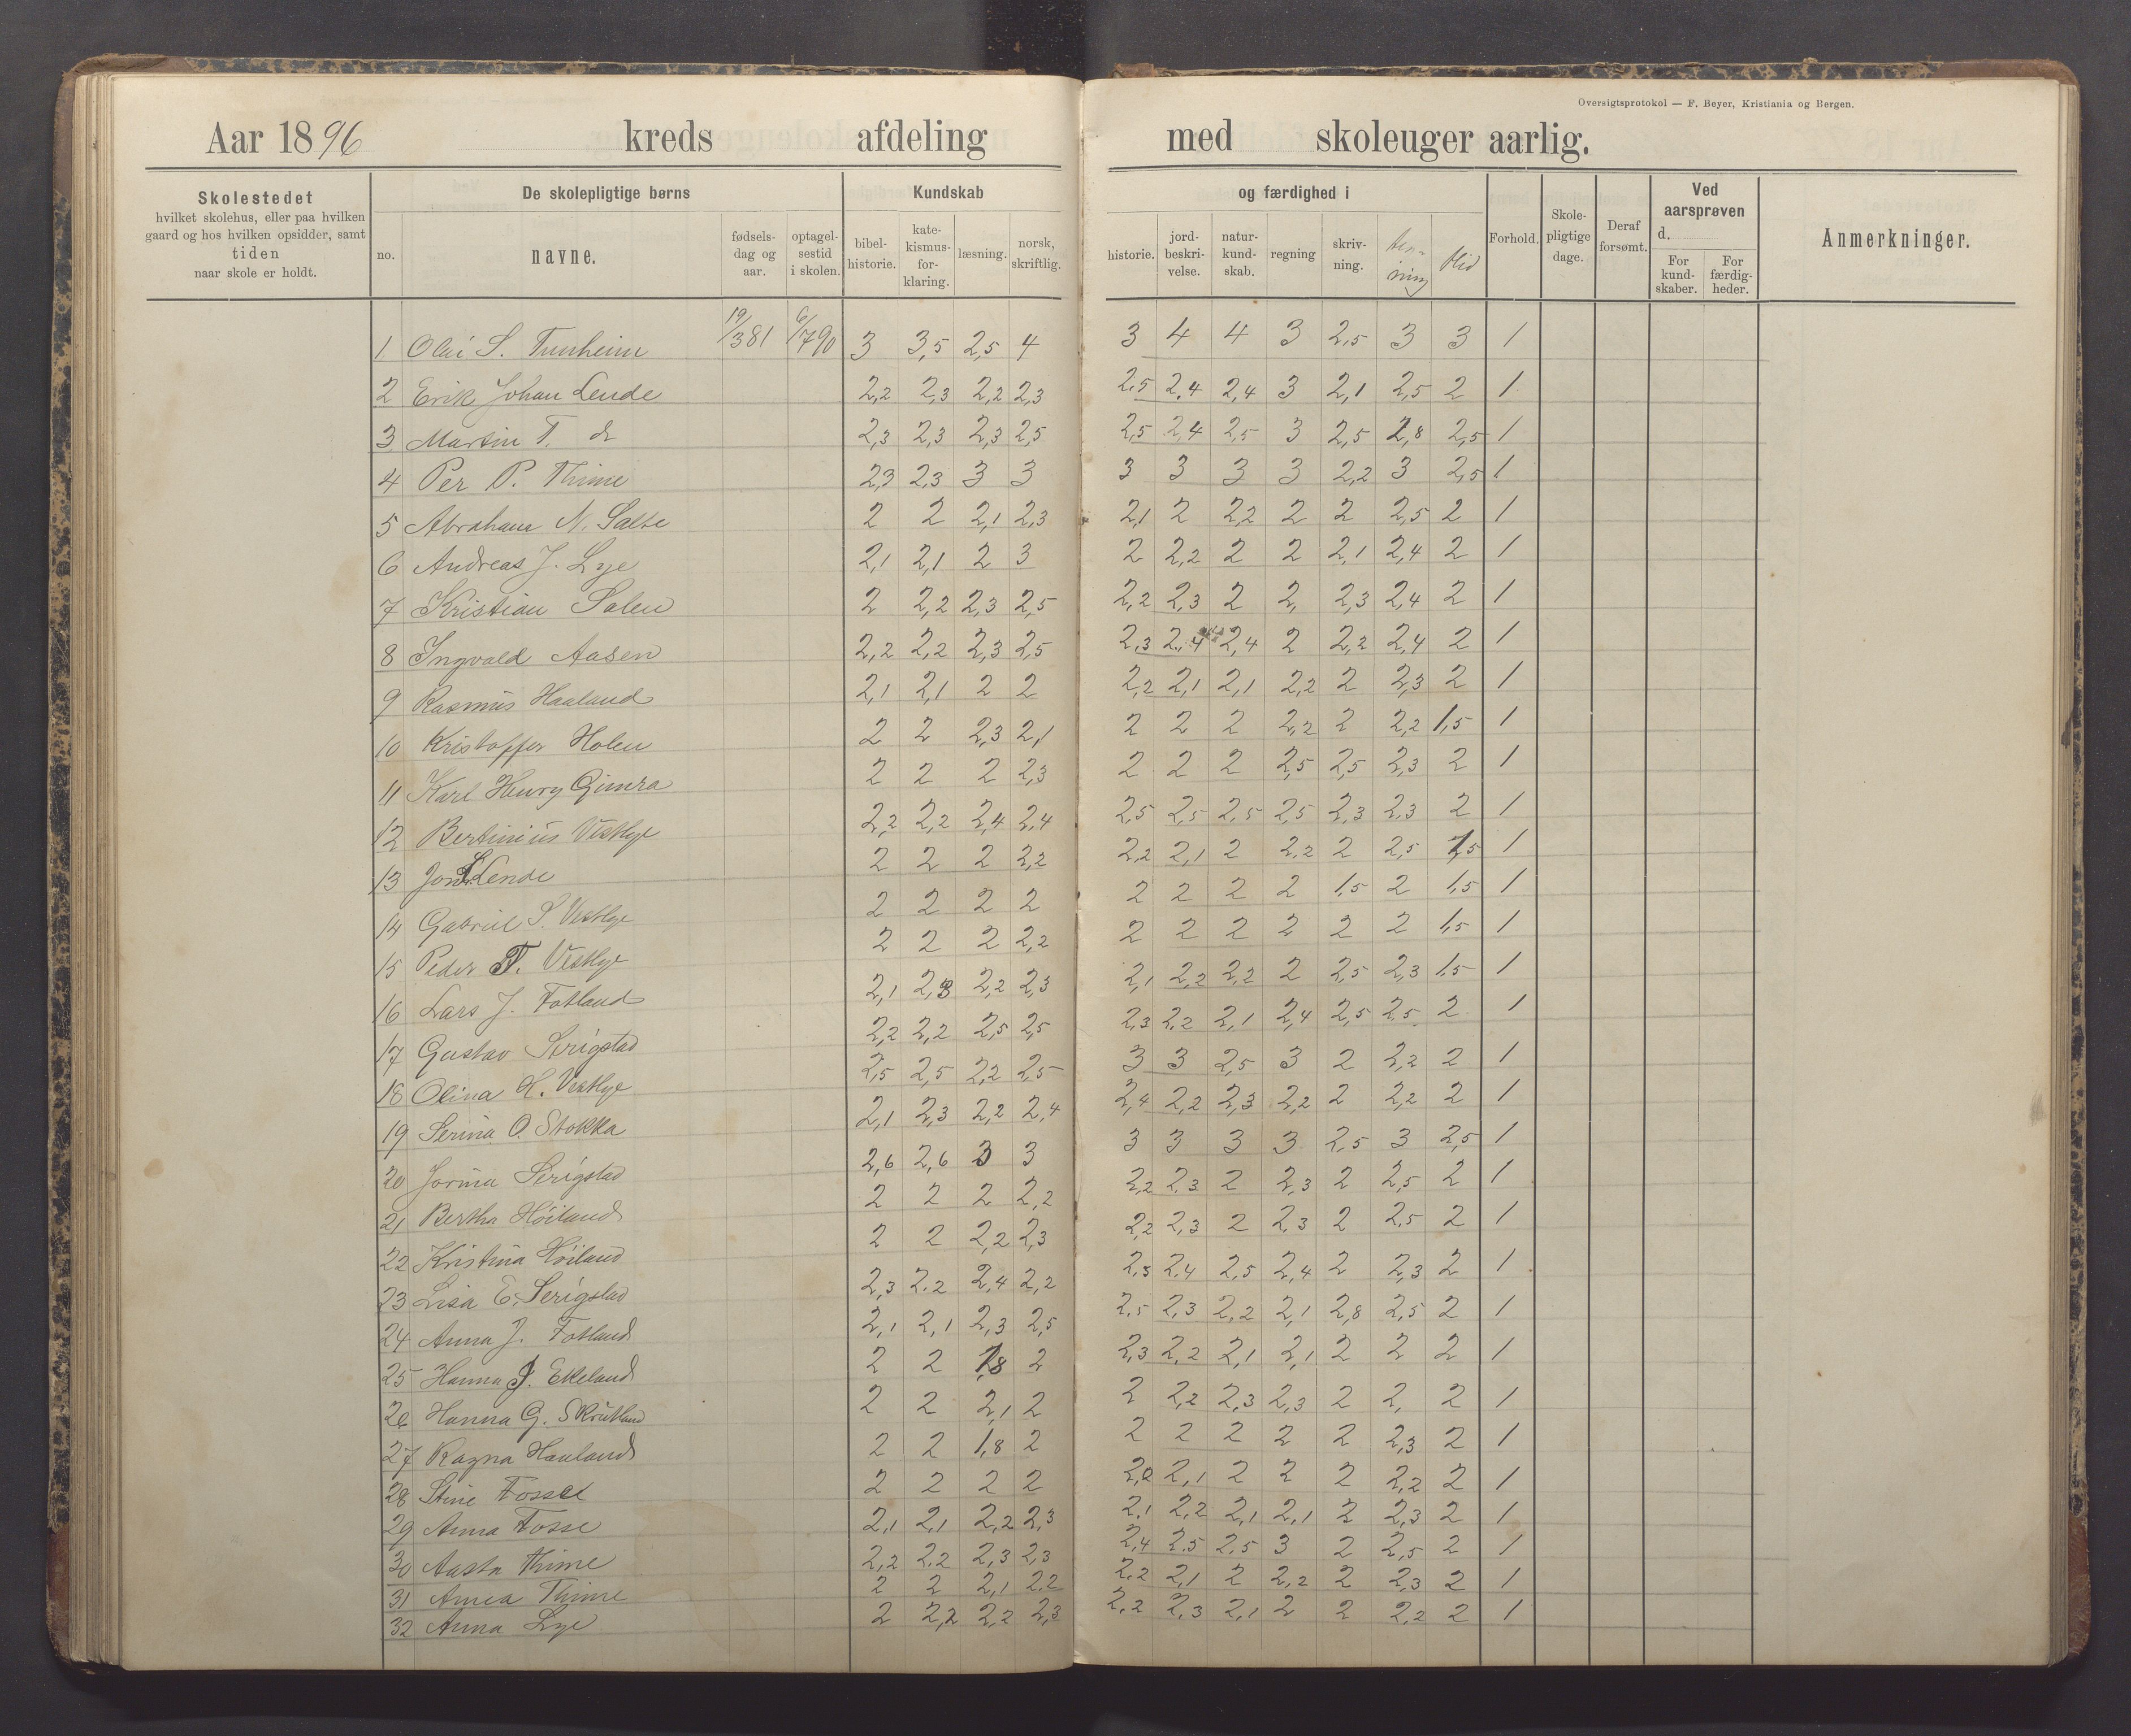 Oversigtsprotokol — F. Beyer, Kristiania og Bergen.
Aar 1896 kreds afdeling med skoleuger aarlig.
Skolestedet hvilket skolehus, eller paa hvilken gaard og hos hvilken opsidder, samt tiden naar skole er holdt.
De skolepligtige børns
no. navne. fødsels-dag og aar. optagel-sestid i skolen.
Kundskab og færdighed i
bibel-historie. kate-kismus-for-klaring. læsning. norsk, skriftlig. historie. jord-beskri-velse. natur-kund-skab. regning skriv-ning. teg-ning flid
Forhold. Skole-pligtige dage. Deraf forsømt. Ved aarsprøven d. For kund-skaber. For færdig-heder. Anmerkninger.
1 Olai S. Tunheim 19/3 81 6/7 90 3 3,5 2,5 4 3 4 4 3 2,5 3 3 1
2 Erik Johan Lende 2,2 2,3 2,2 2,3 2,5 2,4 2,4 3 2,1 2,5 2 1
3 Martin T. do 2,3 2,3 2,3 2,5 2,5 2,4 2,5 3 2,5 2,8 2,5 1
4 Per P. Thime 2,3 2,3 3 3 3 3 3 3 2,2 3 2,5 1
5 Abraham N. Salte 2 2 2,1 2,3 2,1 2 2,2 2 2 2,5 2 1
6 Andreas J. Lye 2,1 2,1 2 3 2 2,2 2 2 2,1 2,4 2 1
7 Kristian Salen 2 2,2 2,3 2,5 2,2 2,3 2 2, 2,3 2,4 2 1
8 Ingvald Aasen 2,2 2,2 2,3 2,5 2,3 2,4 2,4 2 2,2 2,4 2 1
9 Rasmus Haaland 2,1 2,1 2 2 2,2 2,1 2,1 2,2 2 2,3 2 1
10 Kristoffer Holen 2 2 2,3 2,1 2 2 2 2,2 2 2,2 1,5 1
11 Karl Henry Gimra 2 2 2 2,3 2 2 2 2,5 2,5 2,3 2 1
12 Bertinius Vestlye 2,2 2,2 2,4 2,4 2,5 2,5 2,5 2,5 2,3 2,3 2 1
13 Jon Lende 2 2 2 2,2 2,2 2,1 2 2,2 2 2,5 1,5 1
14 Gabriel S. Vestlye 2 2 2 2 2 2 2 2 1,5 2 1,5 1
15 Peder T. Vestlye 2 2 2 2,2 2 2 2 2 2 2 1,5 1
16 Lars J. Fotland 2,1 2,3 2,2 2,3 2,1 2,2 2,2 2 2,5 2,3 1,5 1
17 Gustav Serigstad 2,2 2,2 2,5 2,5 2,3 2,2 2,1 2,4 2,5 2,5 2 1
18 Olina H. Vestlye 2,5 2,5 2,2 2,5 3 3 2,5 3 2 2,2 2 1
19 Serina O. Stokka 2,1 2,3 2,2 2,4 2,4 2,2 2,3 2,2 2 2,2 2 1
20 Jorina Serigstad 2,6 2,6 3 3 3 3 3 3 2,5 3 2,5 1
21 Bertha Høiland 2 2 2 2,2 2,2 2,3 2 2,3 2 2,5 2 1
22 Kristina Høiland 2 2 2,2 2,3 2,2 2,3 2 2,3 2 2,5 2 1
23 Lisa E. Serigstad 2,3 2,2 2,4 2,2 2,5 2,4 2,5 2,4 2 2,3 2 1
24 Anna J. Fotland 2,1 2,1 2,3 2,5 2,5 2,3 2,2 2,1 2,8 2,5 2 1
25 Hanna J. Ekeland 2 2 1,8 2 2,3 2,2 2,1 2,1 2 2 2 1
26 Hanna G. Skrutland 2 2 2,1 2 2 2,2 2,3 2,3 2 2, 2 1
27 Ragna Haaland 2 2 1,8 2 2 2 2 2 2 2,3 2 1
28 Stine Fosse 2 2 2 2 2,2 2,1 2 2 2 2,2 2 1
29 Anna Fosse 2,1 2,1 2,2 2,3 2,1 2,2 2,1 2,1 2 2,3 2 1
30 Aasta Thime 2,2 2,2 2,3 2,3 2,4 2,5 2,5 3 2 2,5 2 1
31 Anna Thime 2 2 2,1 2,2 2,2 2,1 2 2,2 2 2,3 2 1
32 Anna Lye 2 2,2 2,2 2,3 2,2 2,3 2,1 2 2 2,2 2 1